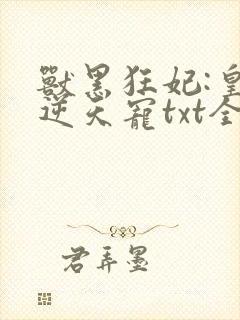 獸黑狂妃:皇
逆天寵txt全
君弄墨